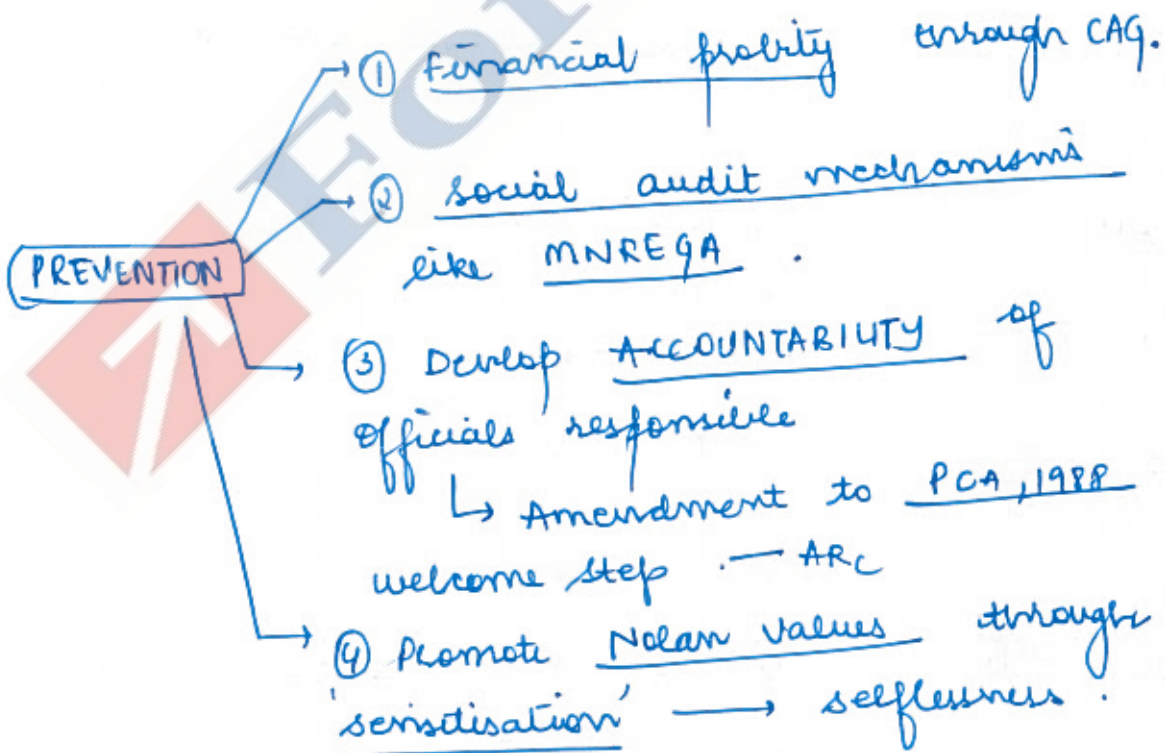 ① Financial probity through CAG.
② social audit mechanisms
like MNREGA .
PREVENTION
③ Develop ACCOUNTABILITY of
officials responsible
↳ Amendment to PCA, 1988
welcome step . — ARC
④ Promote Nolan values through
'sensitisation' → selflessness .